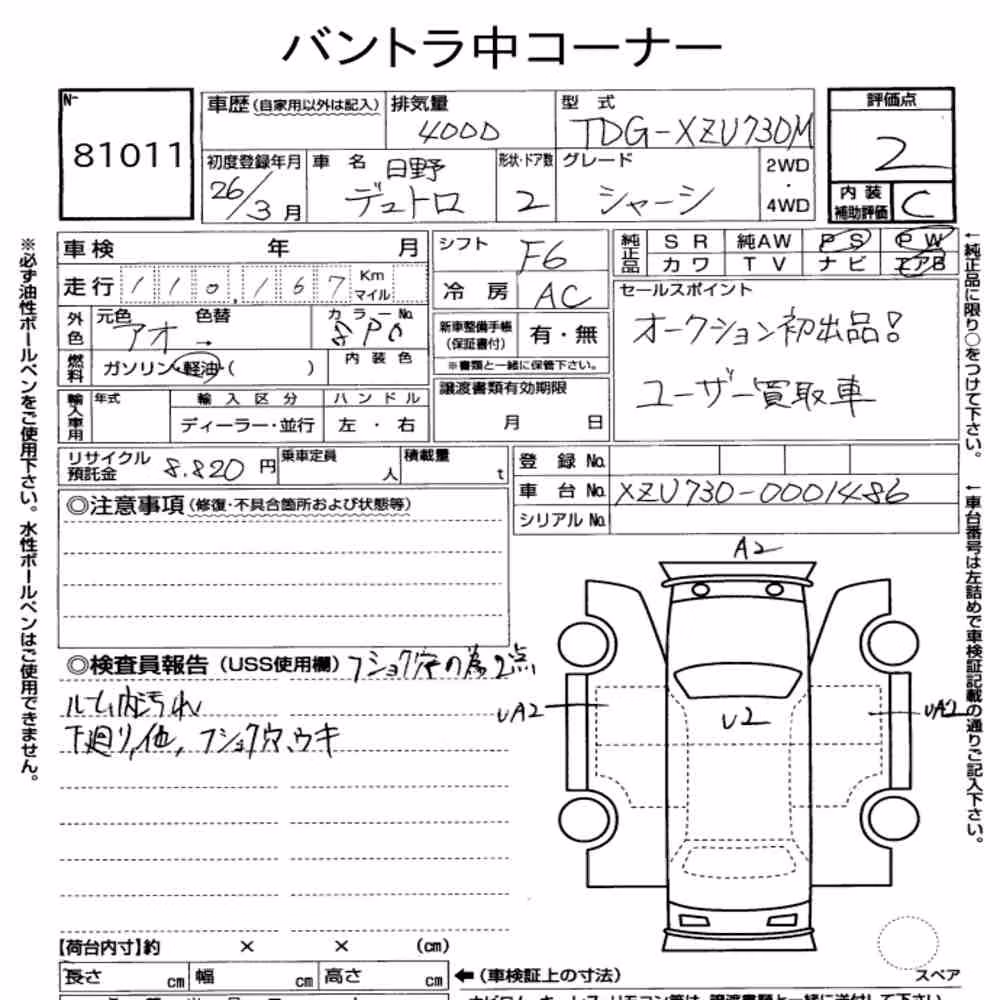 バントラ中コーナー
N-
81011
車歴(自家用以外は記入)
排気量
4000
型 式
TDG-XZU730M
評価点
2
初度登録年月
26/3月
車 名 日野
デュトロ
形状・ドア数
2
グレード
シャーシ
2WD
・
4WD
内装
補助評価
C
車検 年 月
走行 110,167 Km
マイル
外色
元色 色替
アオ →
カラーNo.
8P0
燃料
ガソリン・軽油・( )
内装色
輸入車用
年式
輸入区分
ディーラー・並行
ハンドル
左・右
シフト
F6
冷房
AC
新車整備手帳
(保証書付)
有・無
※書類と一緒に保管下さい。
譲渡書類有効期限
月 日
純正品
SR 純AW PS PW
カワ TV ナビ エアB
セールスポイント
オークション初出品!
ユーザー買取車
リサイクル
預託金
8.820 円
乗車定員
人
積載量
t
登録No.
車台No. XZU730-0001486
シリアルNo.
◎注意事項(修復・不具合箇所および状態等)
◎検査員報告(USS使用欄) フショク穴の為2点
ルーム内汚れ
下廻り,他,フショク穴,ウキ
A2
UA2
U2
UA2
スペア
【荷台内寸】約 × × (cm)
長さ cm 幅 cm 高さ cm
←(車検証上の寸法)
※必ず油性ボールペンをご使用下さい。水性ボールペンはご使用できません。
←純正品に限り○をつけて下さい。
←車台番号は左詰めで車検証記載の通りご記入下さい。